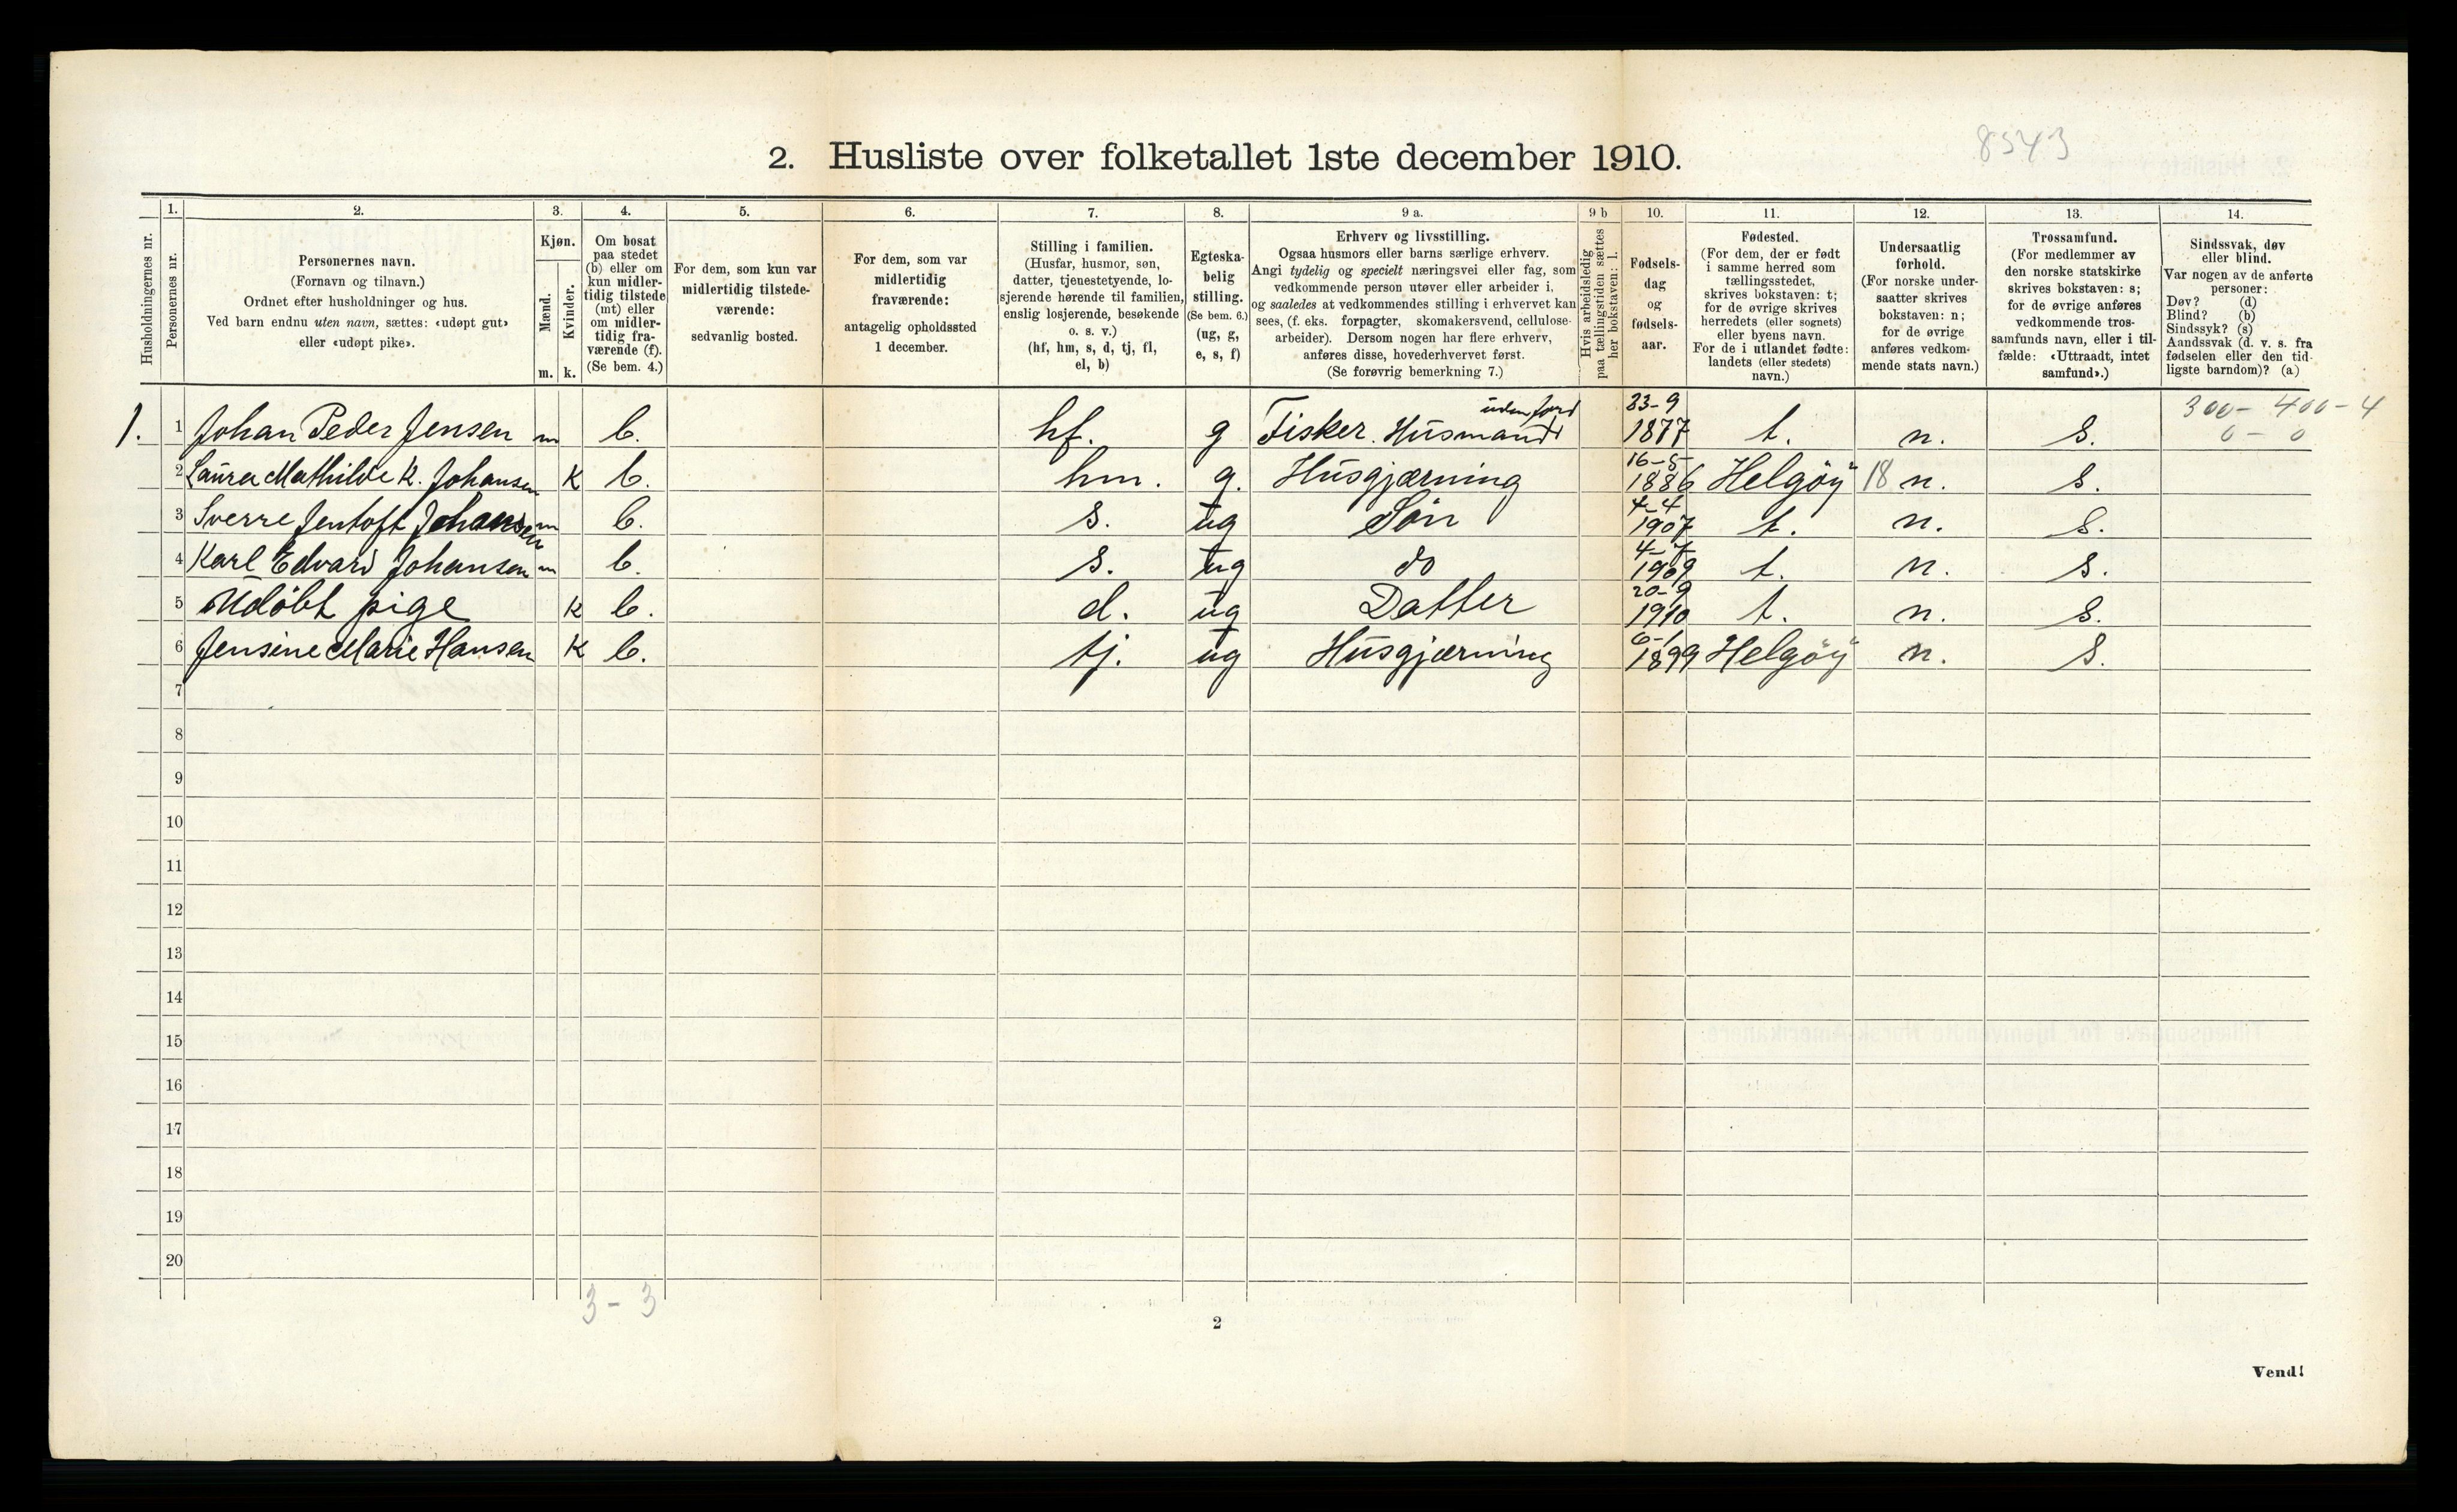 8543
2. Husliste over folketallet 1ste december 1910.
Husholdningernes nr.
1.
Personernes nr.
2.
Personernes navn.
(Fornavn og tilnavn.)
Ordnet efter husholdninger og hus.
Ved barn endnu uten navn, sættes: «udøpt gut»
eller «udøpt pike».
3.
Kjøn.
Mænd.
Kvinder.
m. k.
4.
Om bosat
paa stedet
(b) eller om
kun midler-
tidig tilstede
(mt) eller
om midler-
tidig fra-
værende (f).
(Se bem. 4.)
5.
For dem, som kun var
midlertidig tilstede-
værende:
sedvanlig bosted.
6.
For dem, som var
midlertidig
fraværende:
antagelig opholdssted
1 december.
7.
Stilling i familien.
(Husfar, husmor, søn,
datter, tjenestetyende, lo-
sjerende hørende til familien,
enslig losjerende, besøkende
o. s. v.)
(hf, hm, s, d, tj, fl,
el, b)
8.
Egteska-
belig
stilling.
(Se bem. 6.)
(ug, g,
e, s, f)
9 a.
Erhverv og livsstilling.
Ogsaa husmors eller barns særlige erhverv.
Angi tydelig og specielt næringsvei eller fag, som
vedkommende person utøver eller arbeider i,
og saaledes at vedkommendes stilling i erhvervet kan
sees, (f. eks. forpagter, skomakersvend, cellulose-
arbeider). Dersom nogen har flere erhverv,
anføres disse, hovederhvervet først.
(Se forøvrig bemerkning 7.)
9 b
Hvis arbeidsledig
paa tællingstiden sættes
her bokstaven: l.
10.
Fødsels-
dag
og
fødsels-
aar.
11.
Fødested.
(For dem, der er født
i samme herred som
tællingsstedet,
skrives bokstaven: t;
for de øvrige skrives
herredets (eller sognets)
eller byens navn.
For de i utlandet fødte:
landets (eller stedets)
navn.)
12.
Undersaatlig
forhold.
(For norske under-
saatter skrives
bokstaven: n;
for de øvrige
anføres vedkom-
mende stats navn.)
13.
Trossamfund.
(For medlemmer av
den norske statskirke
skrives bokstaven: s;
for de øvrige anføres
vedkommende tros-
samfunds navn, eller i til-
fælde: «Uttraadt, intet
samfund».)
14.
Sindssvak, døv
eller blind.
Var nogen av de anførte
personer:
Døv? (d)
Blind? (b)
Sindssyk? (s)
Aandssvak (d. v. s. fra
fødselen eller den tid-
ligste barndom)? (a)
uden jord 23-9 300- 400-4
1. 1 Johan Peder Jensen m b. hf. g Fisker. Husmand 1877 t. n. s. 0- 0
16-5-
2 Laura Mathilde K. Johansen K b. hm. g. Husgjærning 1886 Helgöÿ 18 n. s.
4-4
3 Sverre Jentoft Johansen m b. s. ug Sön 1907 t. n. s.
4-7
4 Karl Edvard Johansen m b. s. ug do 1909 t. n. s.
20-9
5 Udöbt pige K b. d. ug Datter 1910 t. n. s.
6-1
6 Jensine Marie Hansen K b. tj. ug Husgjærning 1899 Helgöÿ n. s.
7
8
9
10
11
12
13
14
15
16
17
18
19
20
3 - 3
2
Vend!